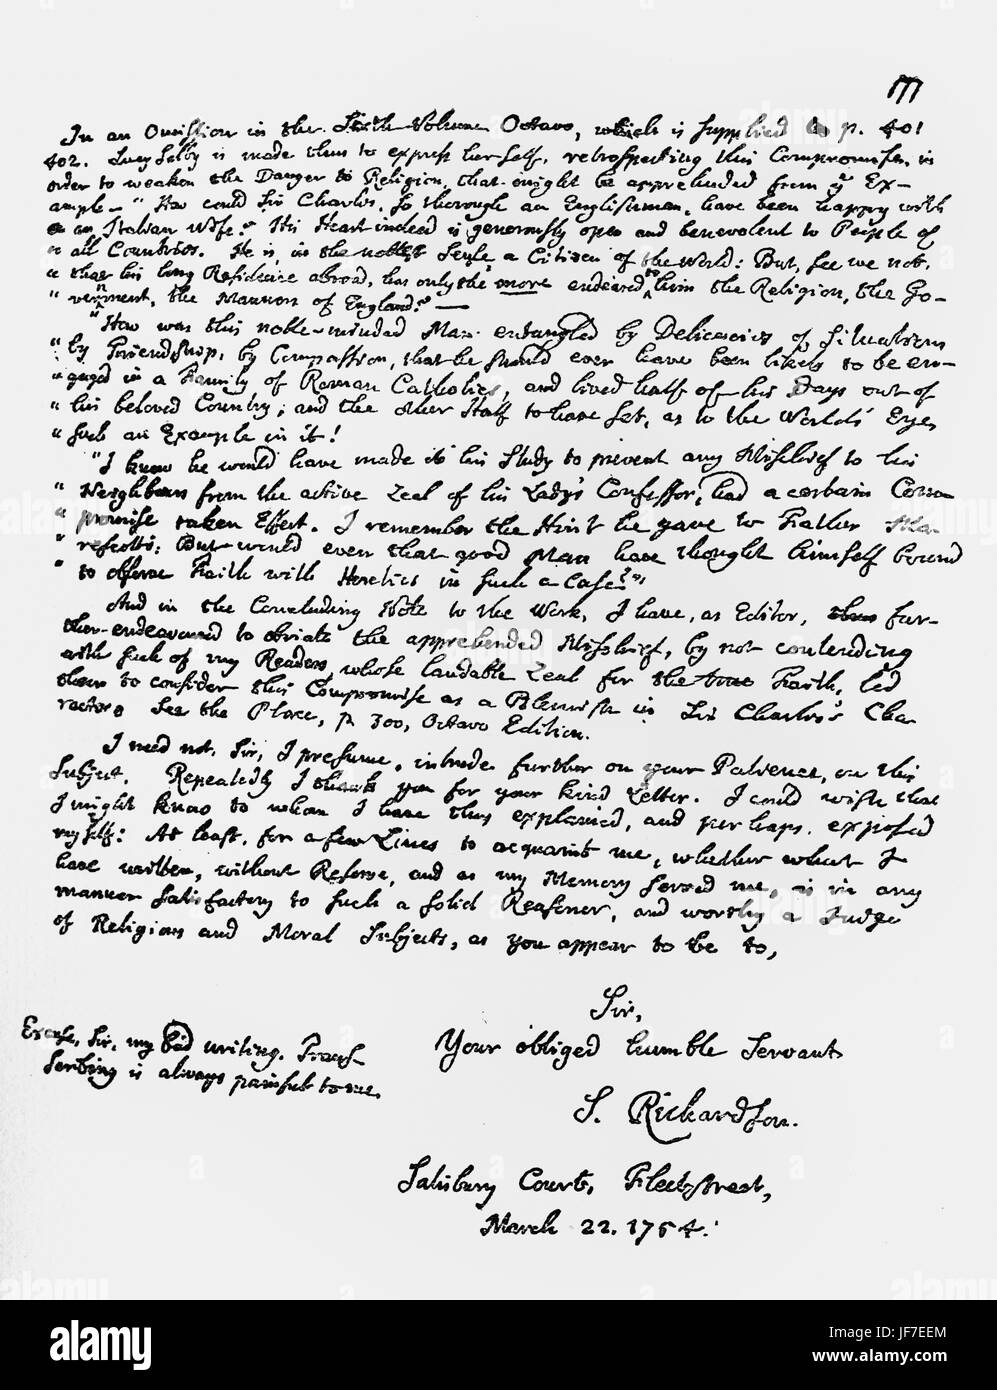 In an Omission in the Sixth Volume Octavo, which is supplied in p. 401
402. Lucy Selby is made thus to express herself, retrospecting this Compromise, in
order to weaken the Danger to Religion, that might be apprehended from ye Ex-
ample — "How could Sir Charles, so thorough an Englishman, have been happy with
" an Italian Wife? His Heart indeed is generously open and benevolent to People of
" all Countries. He is, in the noblest Sense a Citizen of the World: But, see we not,
" that his long Residence abroad, has only the more endeared to him the Religion, the Go-
" vernment, the Manners of England? —
"How was this noble-minded Man entangled by Delicacies of Situation
" by Friendship, by Compassion, that he should ever have been likely to be en-
" gaged in a Family of Roman Catholics, and lived half of his Days out of
" his beloved Country; and the other Half to have set, as to the World's Eye,
" such an Example in it!
"I know he would have made it his Study to prevent any Mischief to his
" Neighbours from the active Zeal of his Lady's Confessor, had a certain Com-
" promise taken Effect. I remember the Hint he gave to Father Ma-
" rescotti: But would even that good Man have thought himself bound
" to observe Faith with Heretics in such a Case?"
And in the Concluding Note to the Work, I have, as Editor, thus fur-
ther endeavoured to obviate the apprehended Mischief, by not contending
with such of my Readers, whose laudable Zeal for the true Faith, led
them to consider this Compromise as a Blemish in Sir Charles's Cha-
racter. See the Place, p. 300, Octavo Edition.
I need not, Sir, I presume, intrude further on your Patience, on this
Subject. Repeatedly I thank you for your kind Letter. I could wish that
I might know to whom I have thus explained, and perhaps, exposed
myself: At least, for a few Lines to acquaint me, whether what I
have written, without Reserve, and as my Memory served me, is in any
manner satisfactory to such a solid Reasoner, and worthy a Judge
of Religious and Moral Subjects, as you appear to be to,
Sir,
Your obliged humble Servant
S. Richardson.
Excuse, Sir, my bad writing. Tran-
scribing is always painful to me.
Salisbury Court, Fleetstreet,
March 22. 1754.
alamy
Image ID: JF7EEM
www.alamy.com